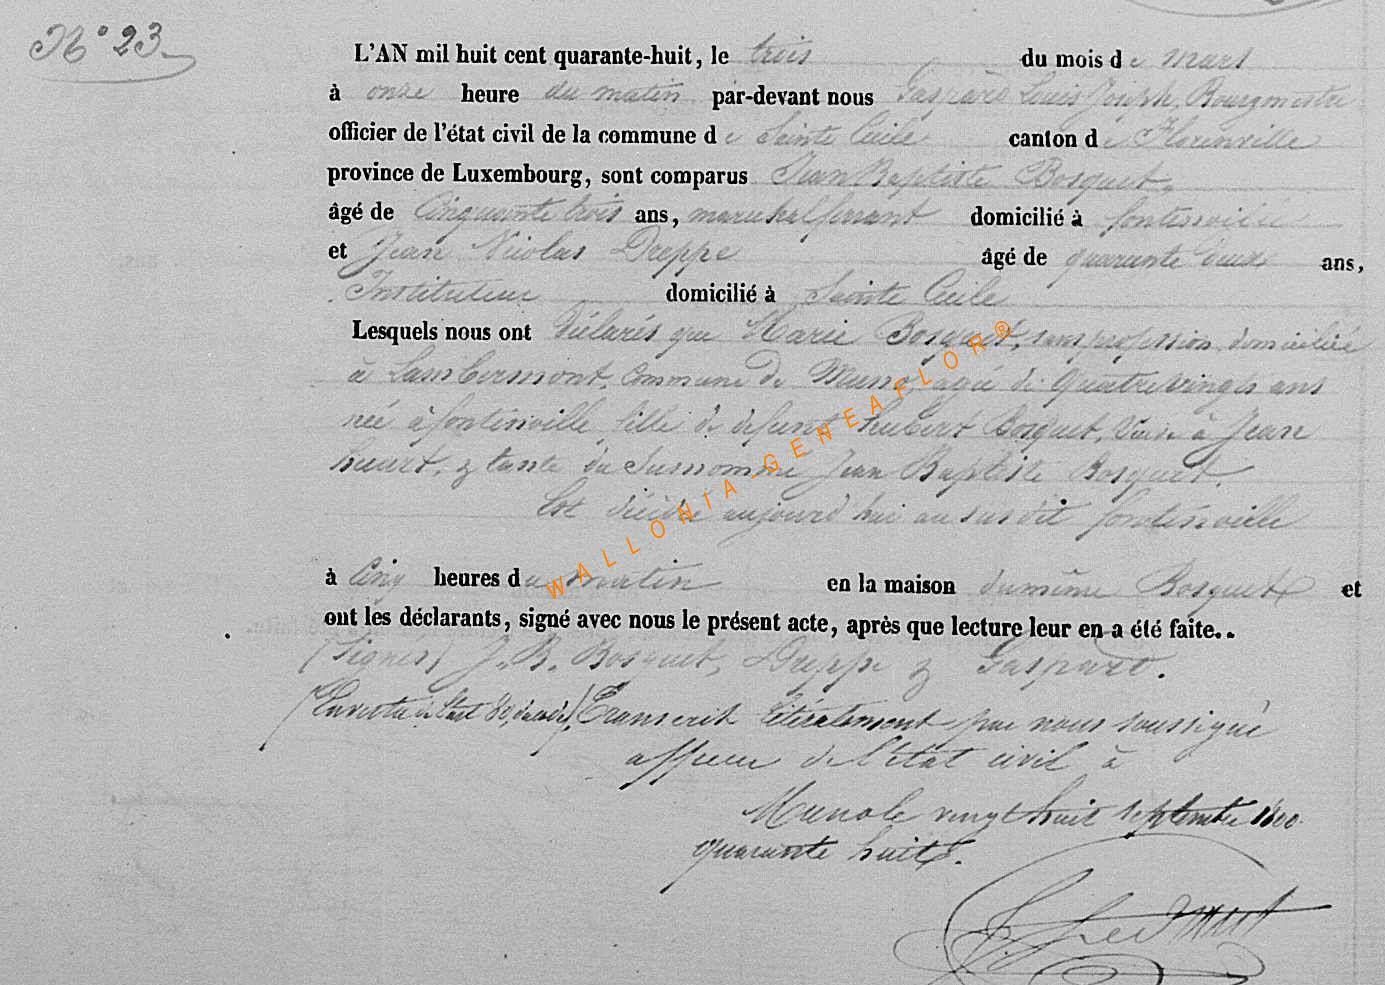 N° 23
L'AN mil huit cent quarante-huit, le trois du mois de mars
à onze heure du matin par-devant nous Gaspard Louis Joseph, Bourgmestre
officier de l'état civil de la commune de Sainte Cécile canton de Florenville
province de Luxembourg, sont comparus Jean Baptiste Bosquet,
âgé de Cinquante trois ans, maréchal ferrant domicilié à fontenoille
et Jean Nicolas Dreppe âgé de quarante deux ans,
Instituteur domicilié à Sainte Cecile
Lesquels nous ont déclarés que Marie Bosquet, sans profession, domiciliée
à Lambermont, Commune de Muno, agée de Quatrevingts ans
née à fontenoille, fille de defunt hubert Bosquet, Veuve à Jean
huart, & tante du susnommé Jean Baptiste Bosquet.
Est décédée aujourd'hui au susdit fontenoille
à Cinq heures du matin en la maison du même Bosquet et
ont les déclarants, signé avec nous le présent acte, après que lecture leur en a été faite..
(Signés) J. B. Bosquet, Dreppe & Gaspard.
(En vertu de l'art 80 du code) Transcrit litéralement par nous soussigné
officier de l'état civil à
Muno le vingt huit septembre 1800
quarante huit.
WALLONIA-GENEAFLOR®